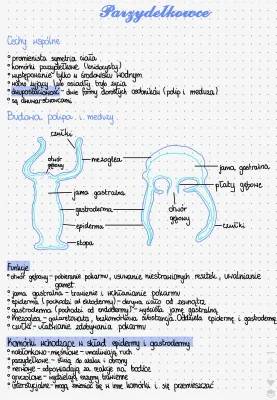 Parzydełkowce
Cechy wspólne
° promienista symetria ciała
° komórki parzydełkowe (knidocysty)
° występowanie tylko w środowisku wodnym
° wolno żyjący lub osiadły tryb życia
° dwupostaciowość - dwie formy dorosłych osobników (polip i meduza)
° są dwuwarstwowcami
Budowa polipa i meduzy
czułki
otwór gębowy
mezoglea
jama gastralna
płaty gębowe
jama gastralna
gastroderma
otwór gębowy
epiderma
czułki
stopa
Funkcje
° otwór gębowy - pobieranie pokarmu, usuwanie niestrawionych resztek, uwalnianie
gamet
° jama gastralna - trawienie i wchłanianie pokarmu
° epiderma (pochodzi od ektodermy) - okrywa ciało od zewnątrz
° gastroderma (pochodzi od endodermy) - wyściela jamę gastralną
° mezoglea - galaretowata, bezkomórkowa substancja. Oddziela epidermę i gastrodermę
° czułki - ułatwianie zdobywania pokarmu
Komórki wchodzące w skład epidermy i gastrodermy
° nabłonkowo-mięśniowe - umożliwiają ruch
° parzydełkowe - służą do ataku i obrony
° nerwowe - odpowiadają za reakcje na bodźce
° gruczołowe - wydzielają enzymy trawienne
° interstycjalne - mogą zmieniać się w inne komórki i się przemieszczać